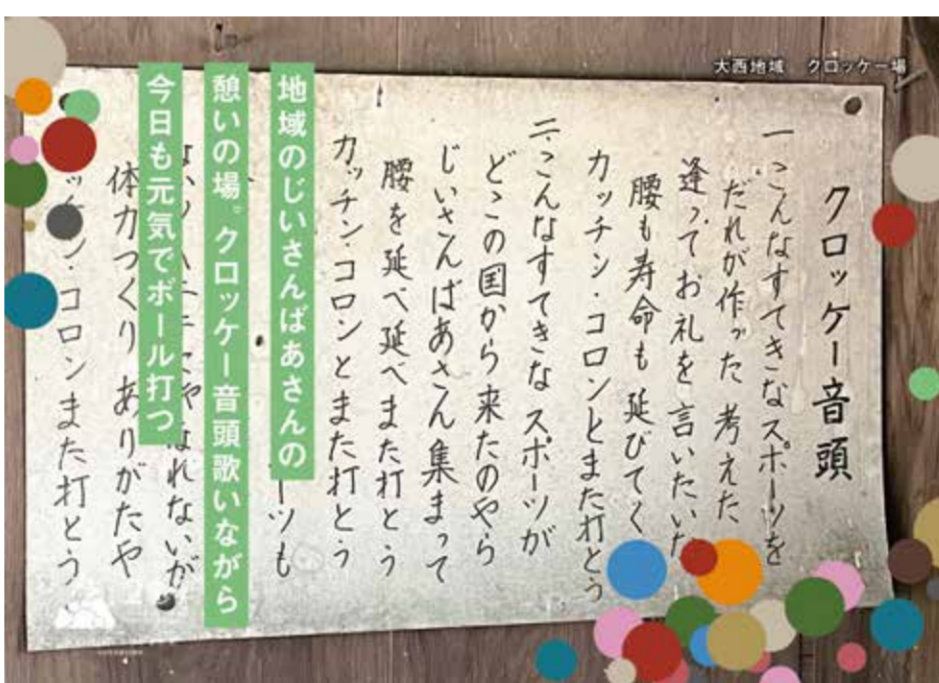 大西地域　クロッケー場
クロッケー音頭
一.こんなすてきなスポーツを
だれが作った 考えた
逢ってお礼を言いたいな
腰も寿命も延びてく
カッチン・コロンとまた打とう
二.こんなすてきなスポーツが
どこの国から来たのやら
じいさんばあさん集まって
腰を延べ延べまた打とう
カッチン・コロンとまた打とう
ーツも
れないが
体力つくり ありがたや
ン・コロンまた打とう
地域のじいさんばあさんの
憩いの場。クロッケー音頭歌いながら
今日も元気でボール打つ